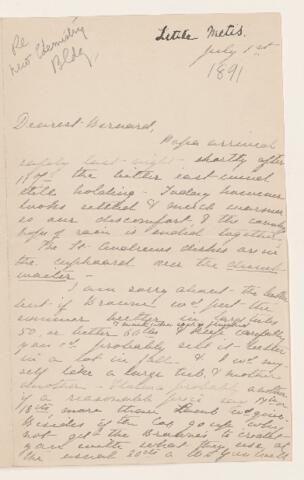 Re
new Chemistry
Bldg.
Little Metis.
July 1st
1891
Dearest Bernard,
Papa arrived
safely last night - shortly after
the bitter east wind
still holding - Today however
looks settled & much warmer
so our discomfort & the country
hope of rain is ended together.
The St. Andrews dishes are in
the cupboard over the
I am sorry about the butter
but if Browne wd. put the
summer butter in large tubs
50, or better 60 lbs
you cd. probably sell it better
in a lot in fall & I wd. my-
self take a large tub, & mother
another - probably another
if a reasonable price say
18cts more than going.
Besides if the go up why
not get the Browne's to credit
you with what they use at
the usual 20cts a lb. You will